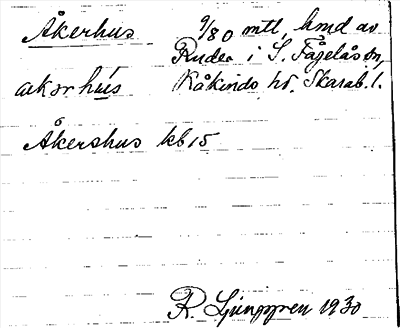 Åkerhus 9/80 mtl, hmd av
Rudea i S. Fågelås sn,
åkərhús Kåkinds hd. Skarab. l.
Åkershus kb 15
R. Ljunggren 1930